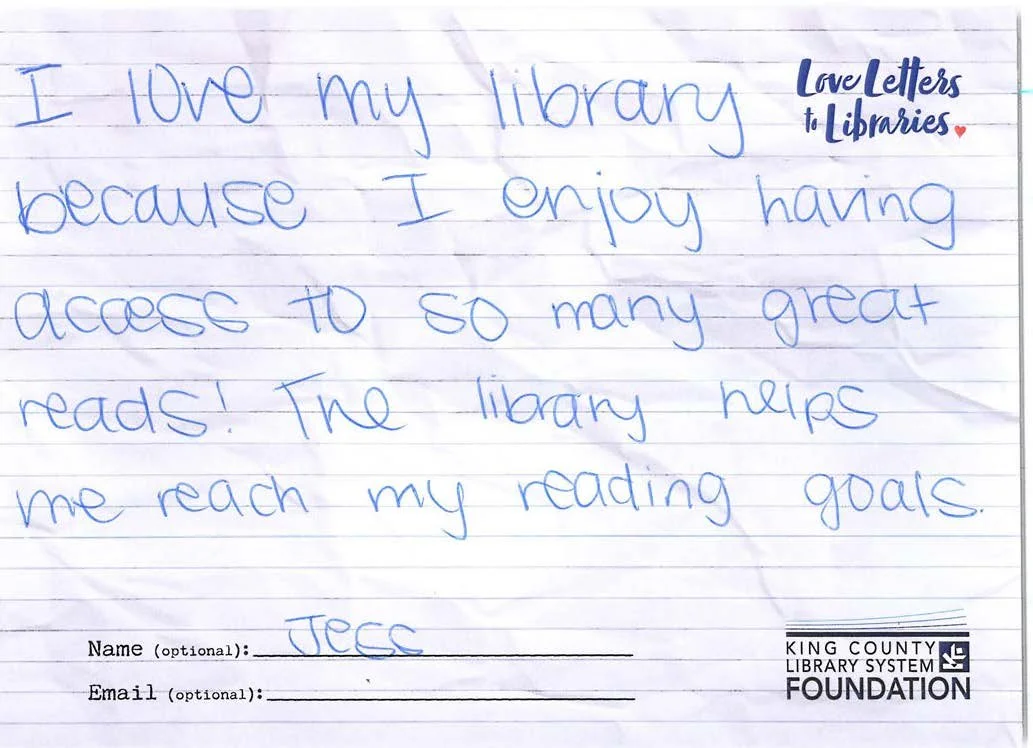 I love my library
Love Letters
to Libraries
because I enjoy having
access to so many great
reads! The library helps
me reach my reading goals.
Name (optional): Jess
Email (optional):
KING COUNTY
LIBRARY SYSTEM
FOUNDATION